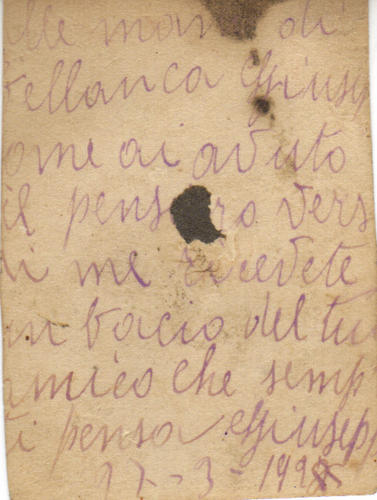 lle mani di
ellanca Giusep
ome ai avuto
il pensiero vers
di me ricevete
un bacio del tu
amico che semp
ti pensa Giusepp
17-3-